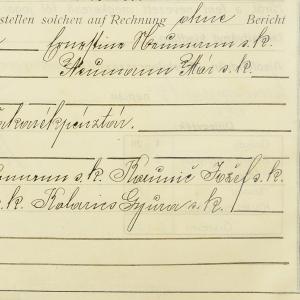 stellen solchen auf Rechnung ohne Bericht
Ernestine Neumann s.k.
Neumann Mór s.k.
takarékpénztár.
umann s.k. Kaunič Jožef s.k.
s.k. Kolarics Gyura s.k.